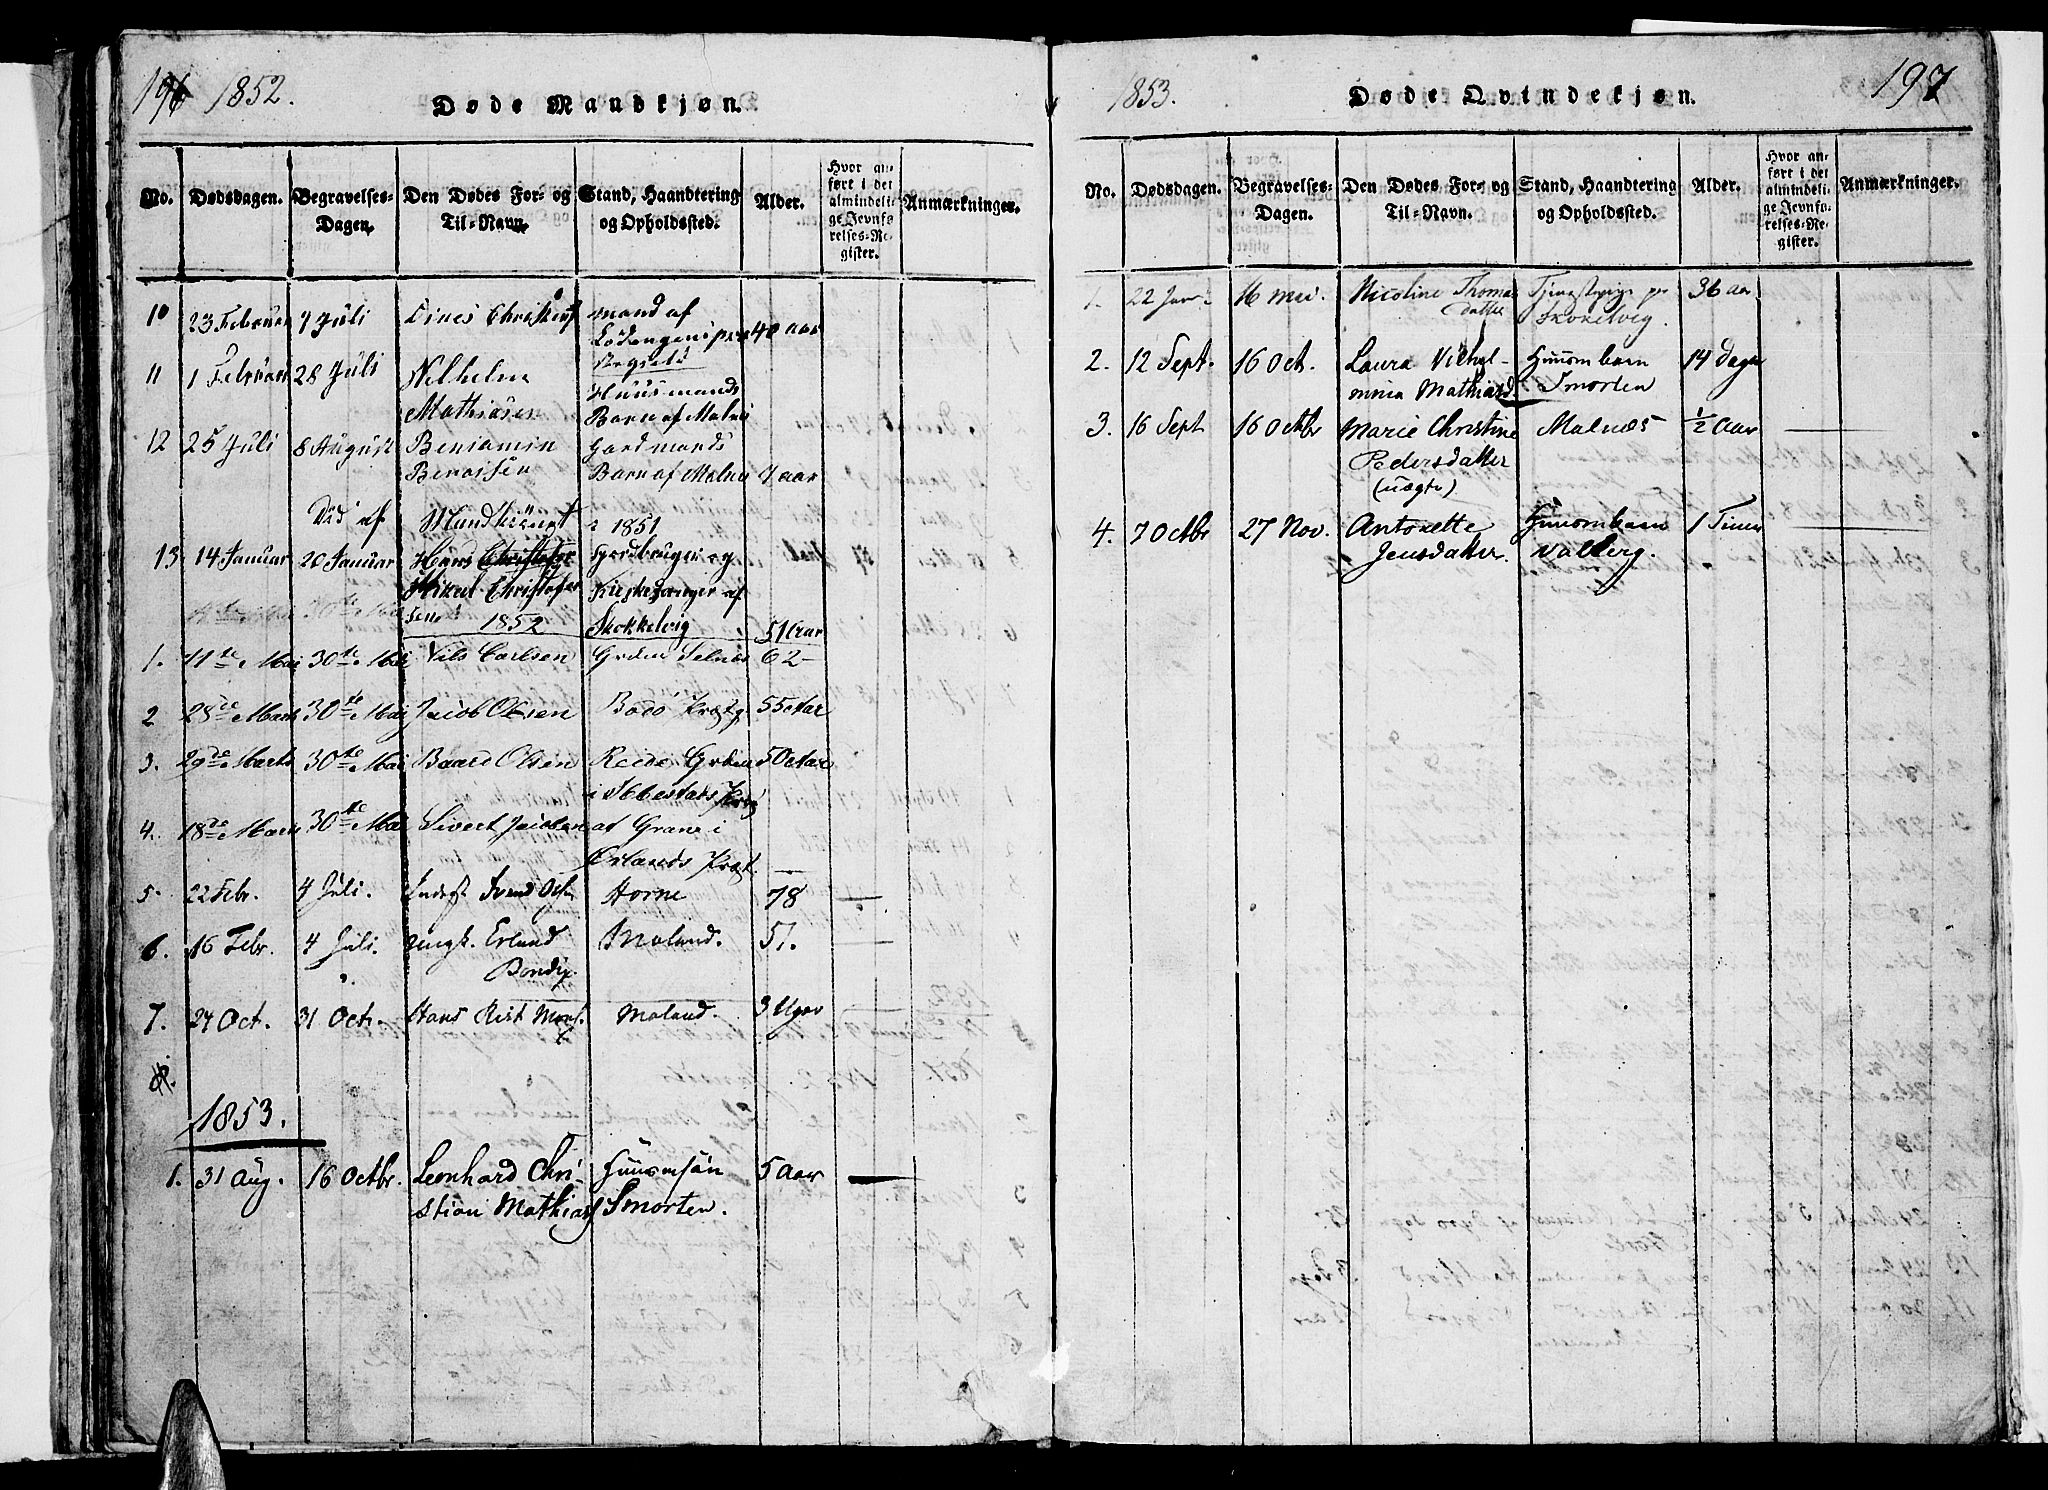 196 1852.
Døde Mandkjøn.
No. Dødsdagen. Begravelses-Dagen. Den Dødes For- og Til-Navn. Stand, Haandtering og Opholdssted. Alder. Hvor anført i det almindelige Jevnførelses-Register. Anmærkninger.
10 23 Februar 7 Juli Dines mand af
Lødingens 40 aar
11 1 Februar 28 Juli Vilhelm
Huusmands
Mathiasen Barn af Malnes
12 25 Juli 8 August Benjamin Gaardmands
Barn af Malnes 7 aar
Død af 1851
13 14 Januar 20 Januar Hans Christofer Jordbruger og
Mikael Christofer Kirkesanger af
sen 1852 Skokkelvig 51 aar
1. 11te Mai 30te Mai Nils Carlsen Grdm Selnes 62 -
2 28de Marts 30te Mai Jacob Olsen Bodö Præstg 55 Aar
3. 29de Marts 30te Mai Baard Olsen Grdm 50 Aar
i Ibbestads
4. 18de Marts 30te Mai Sivert Jacobsen af Grane i
Ørlands Præst. —
5. 22 Febr. 4 Juli. Inderst Svend Horne 78 —
6. 16 Febr. 4 Juli. Ungk. Erland Maland. 51. —
"
7. 24 Oct. 31 Octr. Hans Maland. 3 Uger —
1853.
1. 31 Aug. 16 Octbr. Leonhard Chri- Huusmsøn 5 Aar —
stian Mathias Smorten.
1853. Døde Qvindekjøn. 197
No. Dødsdagen. Begravelses-Dagen. Den Dødes For- og Til-Navn. Stand, Haandtering og Opholdssted. Alder. Hvor anført i det almindelige Jevnførelses-Register. Anmærkninger.
1. 22 Janr. 16 mai. Nicoline Thomas Tjenestepige paa 36 aar
datter Skokelvig.
2. 12 Sept. 16 Oct. Laura Vilhel- Huusm barn 14 Dage
mina Mathiasd. Smorten
3. 16 Sept 16 Octbr Marie Christine Malnæs ½ Aar —
Pedersdatter
(uægte)
4. 7 Octbr 27 Nov. Antonette Huusm barn 1 Time —
Jensdatter. Valberg.